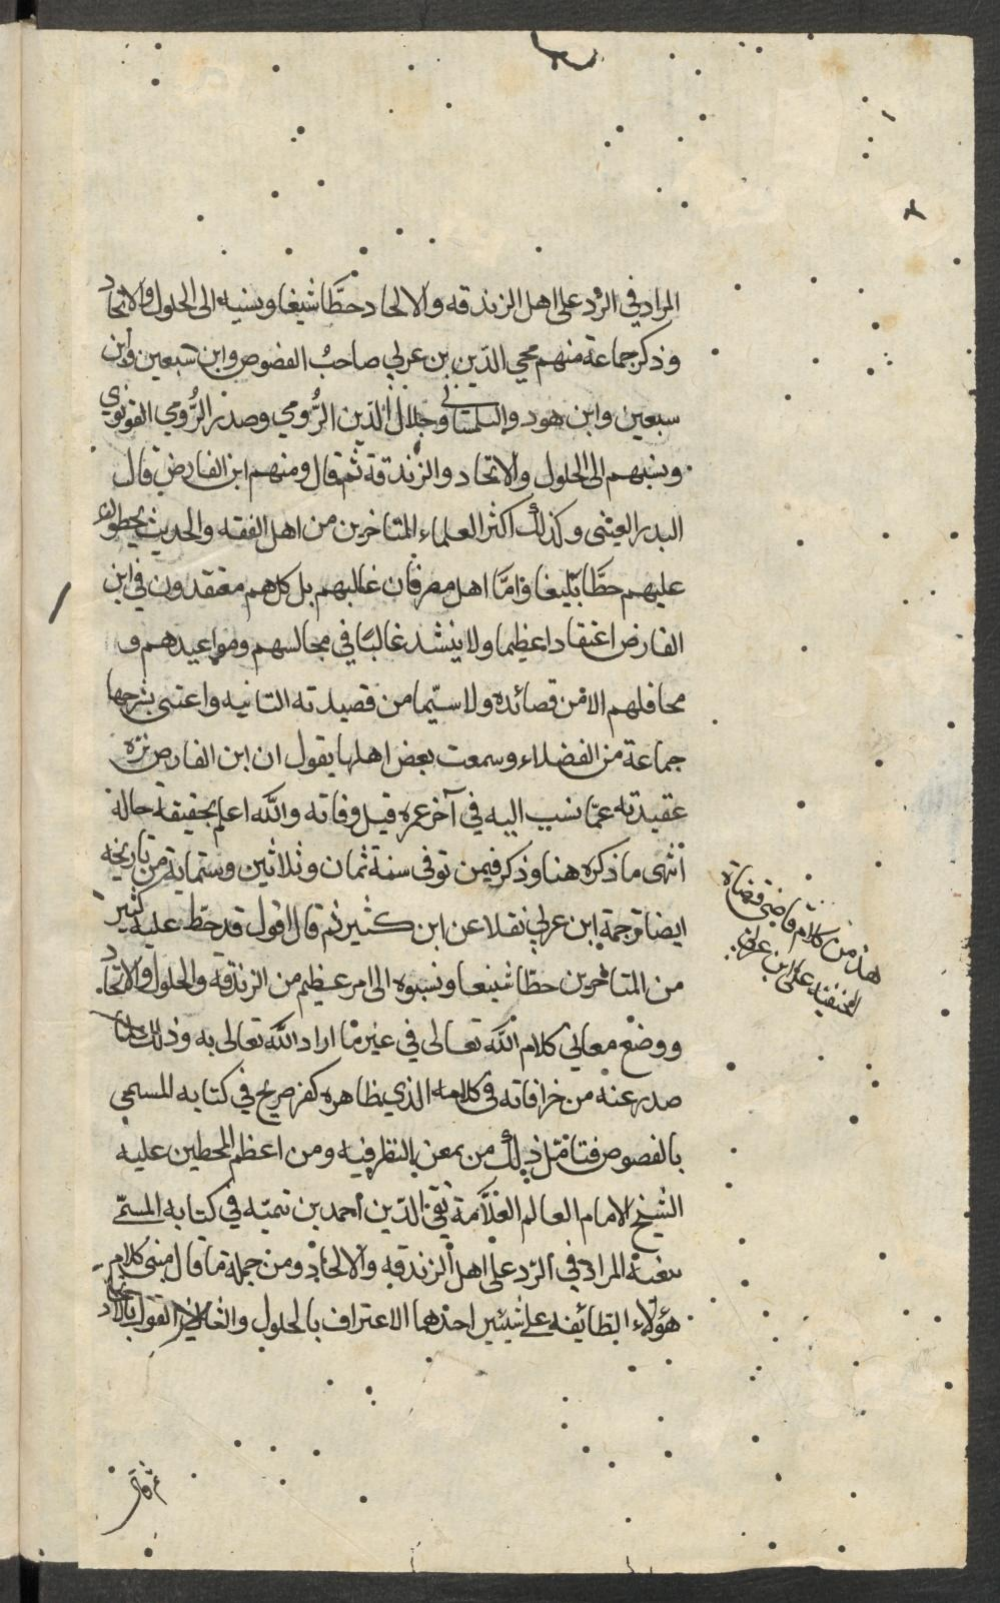 المراد في الرد على اهل الزندقه والالحاد حطا شيغا وبسنيه الى الحلول والاتحاد
وذكر جماعة منهم محي الدين بن عربي صاحب الفصوص وابن سبعين وابن
سبعين وابن هود والتلمساني وجلال الدين الرومي وصدر الرومي القونوي
ونسبهم الى الحلول والاتحاد والزندقة ثم قال ومنهم ابن الفارض قال
البدر العيني وكذلك اكثر العلماء المتاخرين من اهل الفقه والحديث يحطون
عليهم حطا بليغا واما اهل مصر فان غالبهم بل كلهم معتقدون في ابن
الفارض اعتقادا عظيما ولا ينشد غالبا في مجالسهم ومواعيدهم و
محافلهم الا من قصائده ولا سيما من قصيدته التائيه واعتنى بشرحها
جماعة من الفضلاء وسمعت بعض اهلها يقول ان ابن الفارض نزه
عقيدته عما نسب اليه في آخر عمره قبل وفاته والله اعلم بحقيقة حاله
انتهى ما ذكره هنا وذكر فيمن توفى سنة ثمان وثلاثين وستماية من تاريخه
ايضا ترجمة ابن عربي نقلا عن ابن كثير ثم قال اقول قد حط عليه كثير
من المتاخرين حطا شنيعا ونسبوه الى امر عظيم من الزندقه والحلول والاتحاد
ووضع معاني كلام الله تعالى في غير ما اراد الله تعالى به وذلك
صدر عنه من خرافاته في كلامه الذي ظاهره كفر صريح في كتابه المسمى
بالفصوص فتامل ذلك من يمعن بالنظر فيه ومن اعظم المحطين عليه
الشيخ الامام العالم العلامة تقي الدين احمد بن تيميه في كتابه المسمى
بغية المراد في الرد على اهل الزندقه والالحاد ومن جملة ما قال مبنى كلام
هؤلاء الطائفه على شيئين احدهما الاعتراف بالحلول والثاني القول بالاتحاد
هذ من كلام قاضي قضاة
الحنفيه على ابن عربي